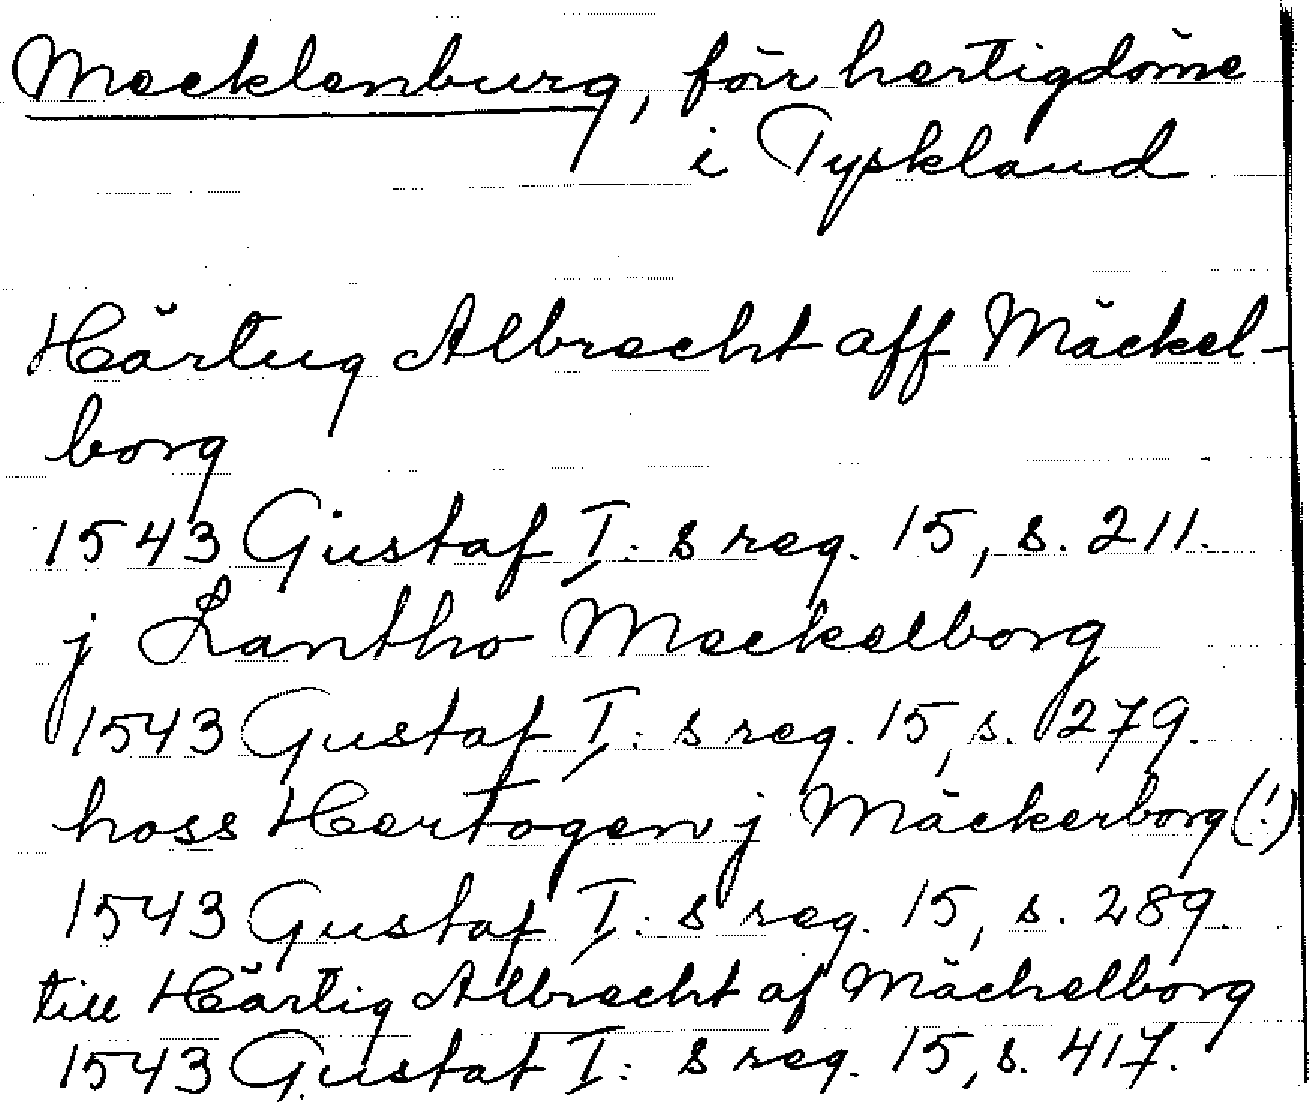 Mecklenburg, förr hertigdöme
i Tyskland
Härtug Albrecht aff Mäckel-
borg
1543 Gustaf I:s reg. 15, s. 211.
j Lantho Meckelborg
1543 Gustaf I:s reg. 15, s. 279.
hoss Hertogen j Mäckerborg (!)
1543 Gustaf I:s reg. 15, s. 289.
till Härtig Albrecht af Mächelborg
1543 Gustaf I:s reg. 15, s. 417.